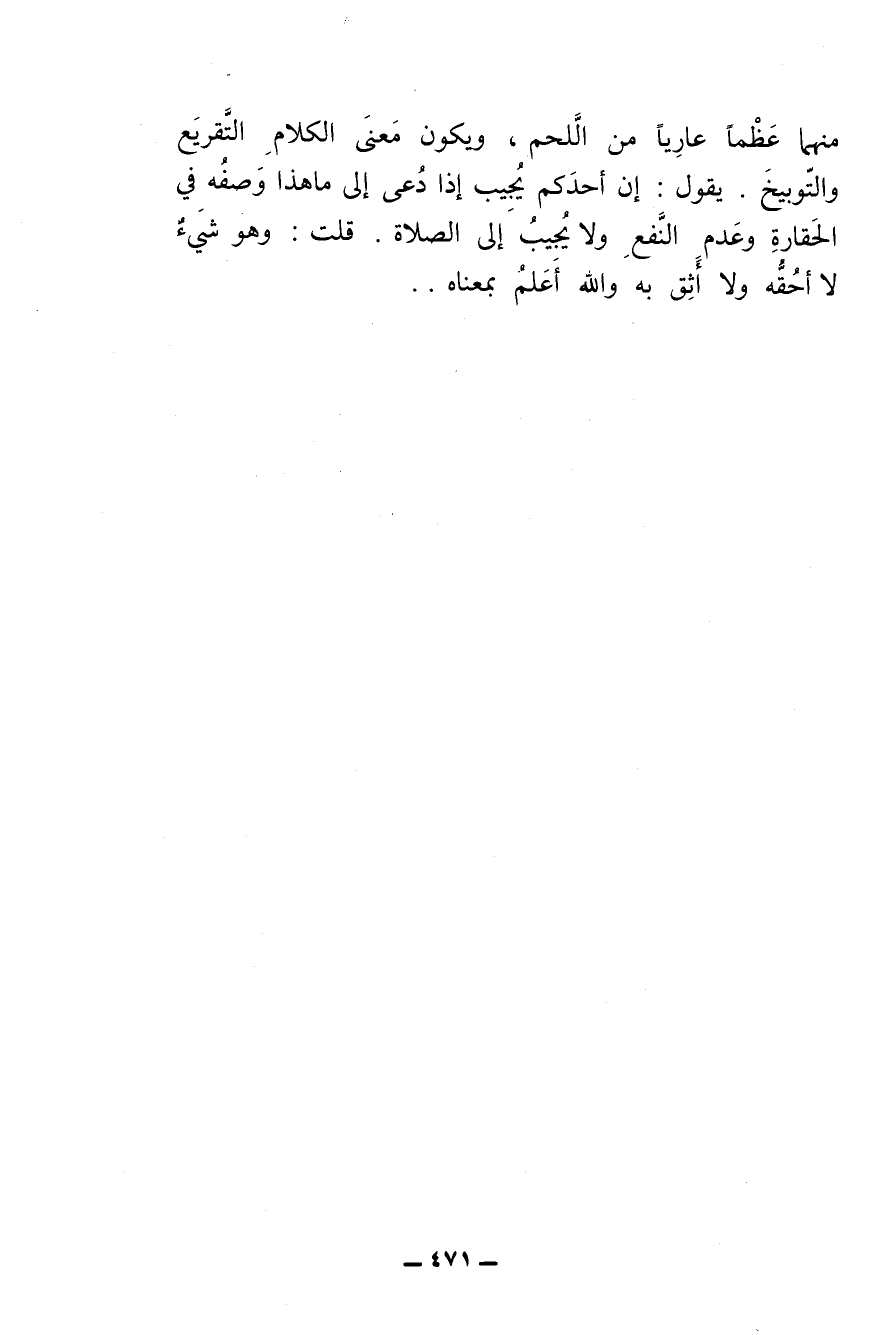 منهما عَظْماً عارِياً من الَّلحم ، ويكون مَعنَى الكلامِ التَّقريَع
والتّوبيخَ . يقول : إن أحدَكم يُجِيب إذا دُعى إلى ماهذا وَصفُه في
الحَقارةِ وعَدمِ النَّفعِ ولا يُجِيبُ إلى الصلاة . قلت : وهو شَيءٌ
لا أحُقُّه ولا أَثِق به والله أَعَلمُ بمعناه . .
— ٤٧١ —